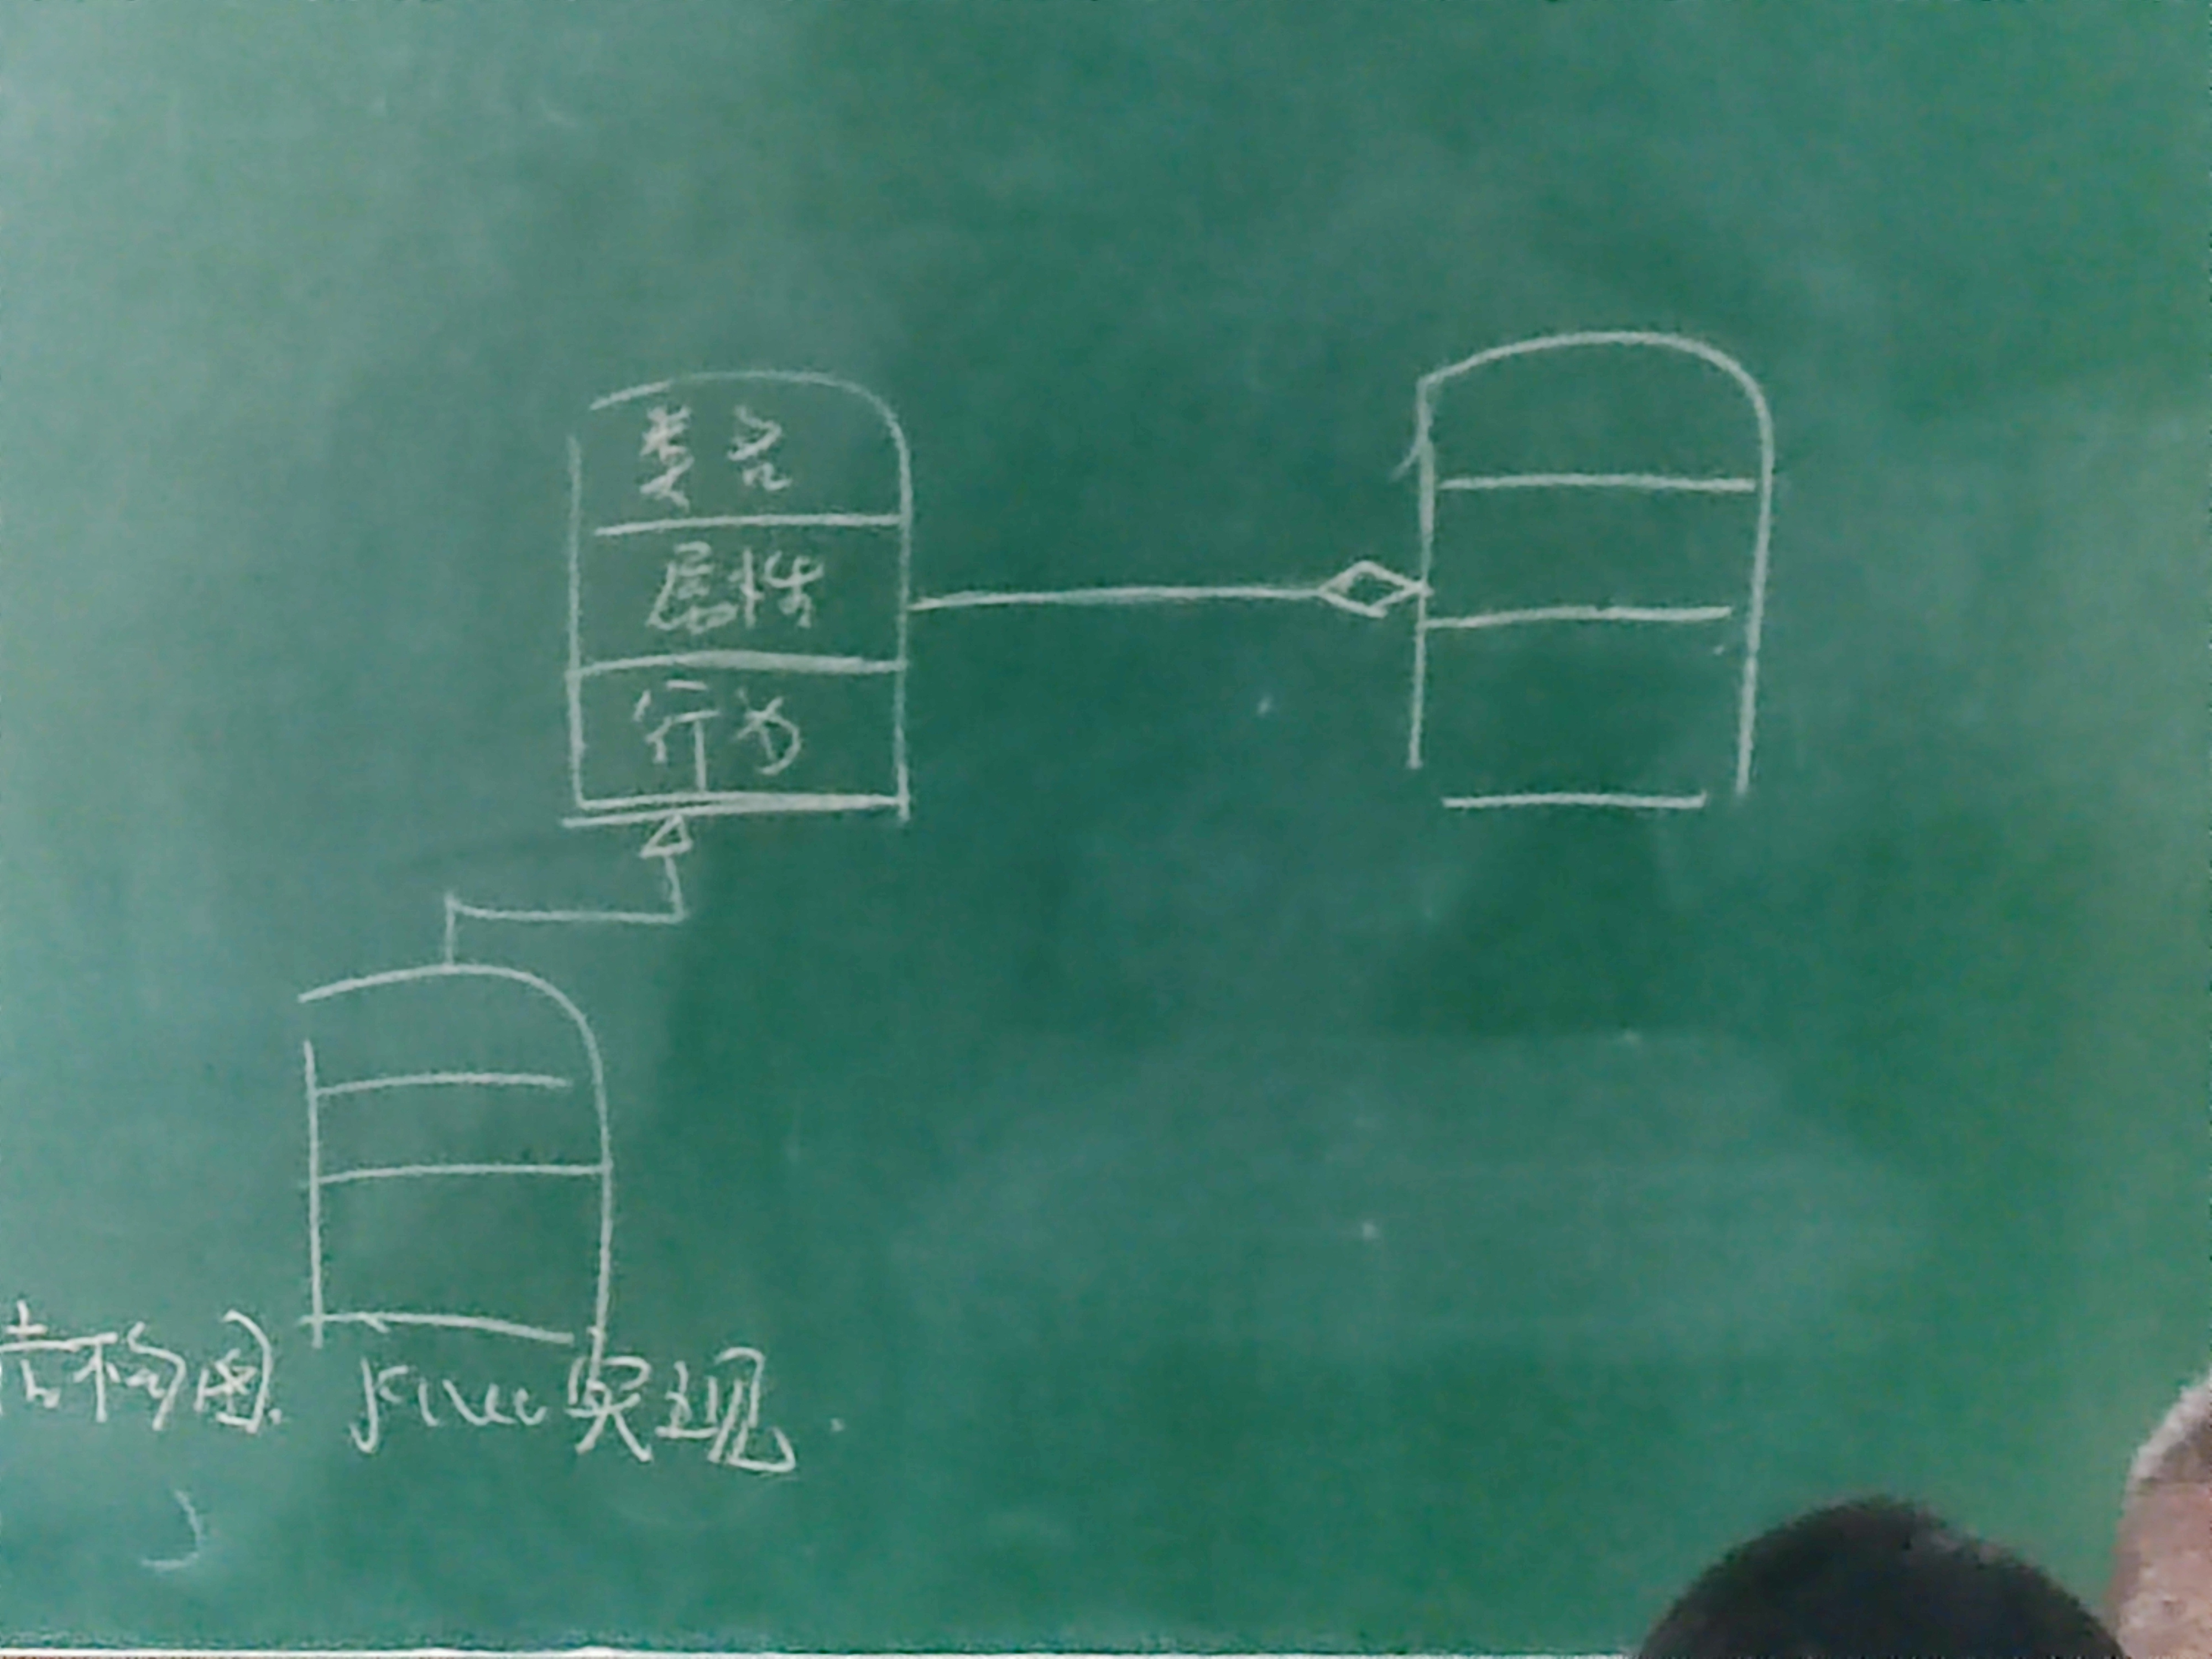 类名
属性
行为
结构图. Java实现.